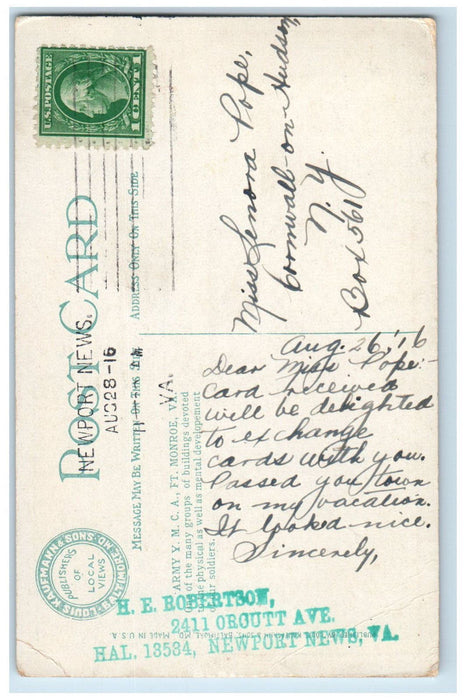 U.S. POSTAGE
1 CENT 1
POST CARD
ADDRESS ONLY ON THIS SIDE
MESSAGE MAY BE WRITTEN ON THIS
NEWPORT NEWS,
AUG 28-16
VA.
Miss Lenora Pope,
Cornwall-on-Hudson,
N. Y.
Box 561
Aug. 26, '16
Dear Miss Pope:-
Card received
will be delighted
to exchange
cards with you.
Passed you town
on my vacation.
It looked nice.
Sincerely,
H. E. ROBERTSON,
2411 ORCUTT AVE.
HAL. 13534, NEWPORT NEWS, VA.
ARMY Y. M. C. A., FT. MONROE, VA.
of the many groups of buildings devoted
the physical as well as mental development
soldiers.
LOUIS KAUFMANN & SONS
PUBLISHERS
OF
LOCAL
VIEWS
MADE IN U.S.A.